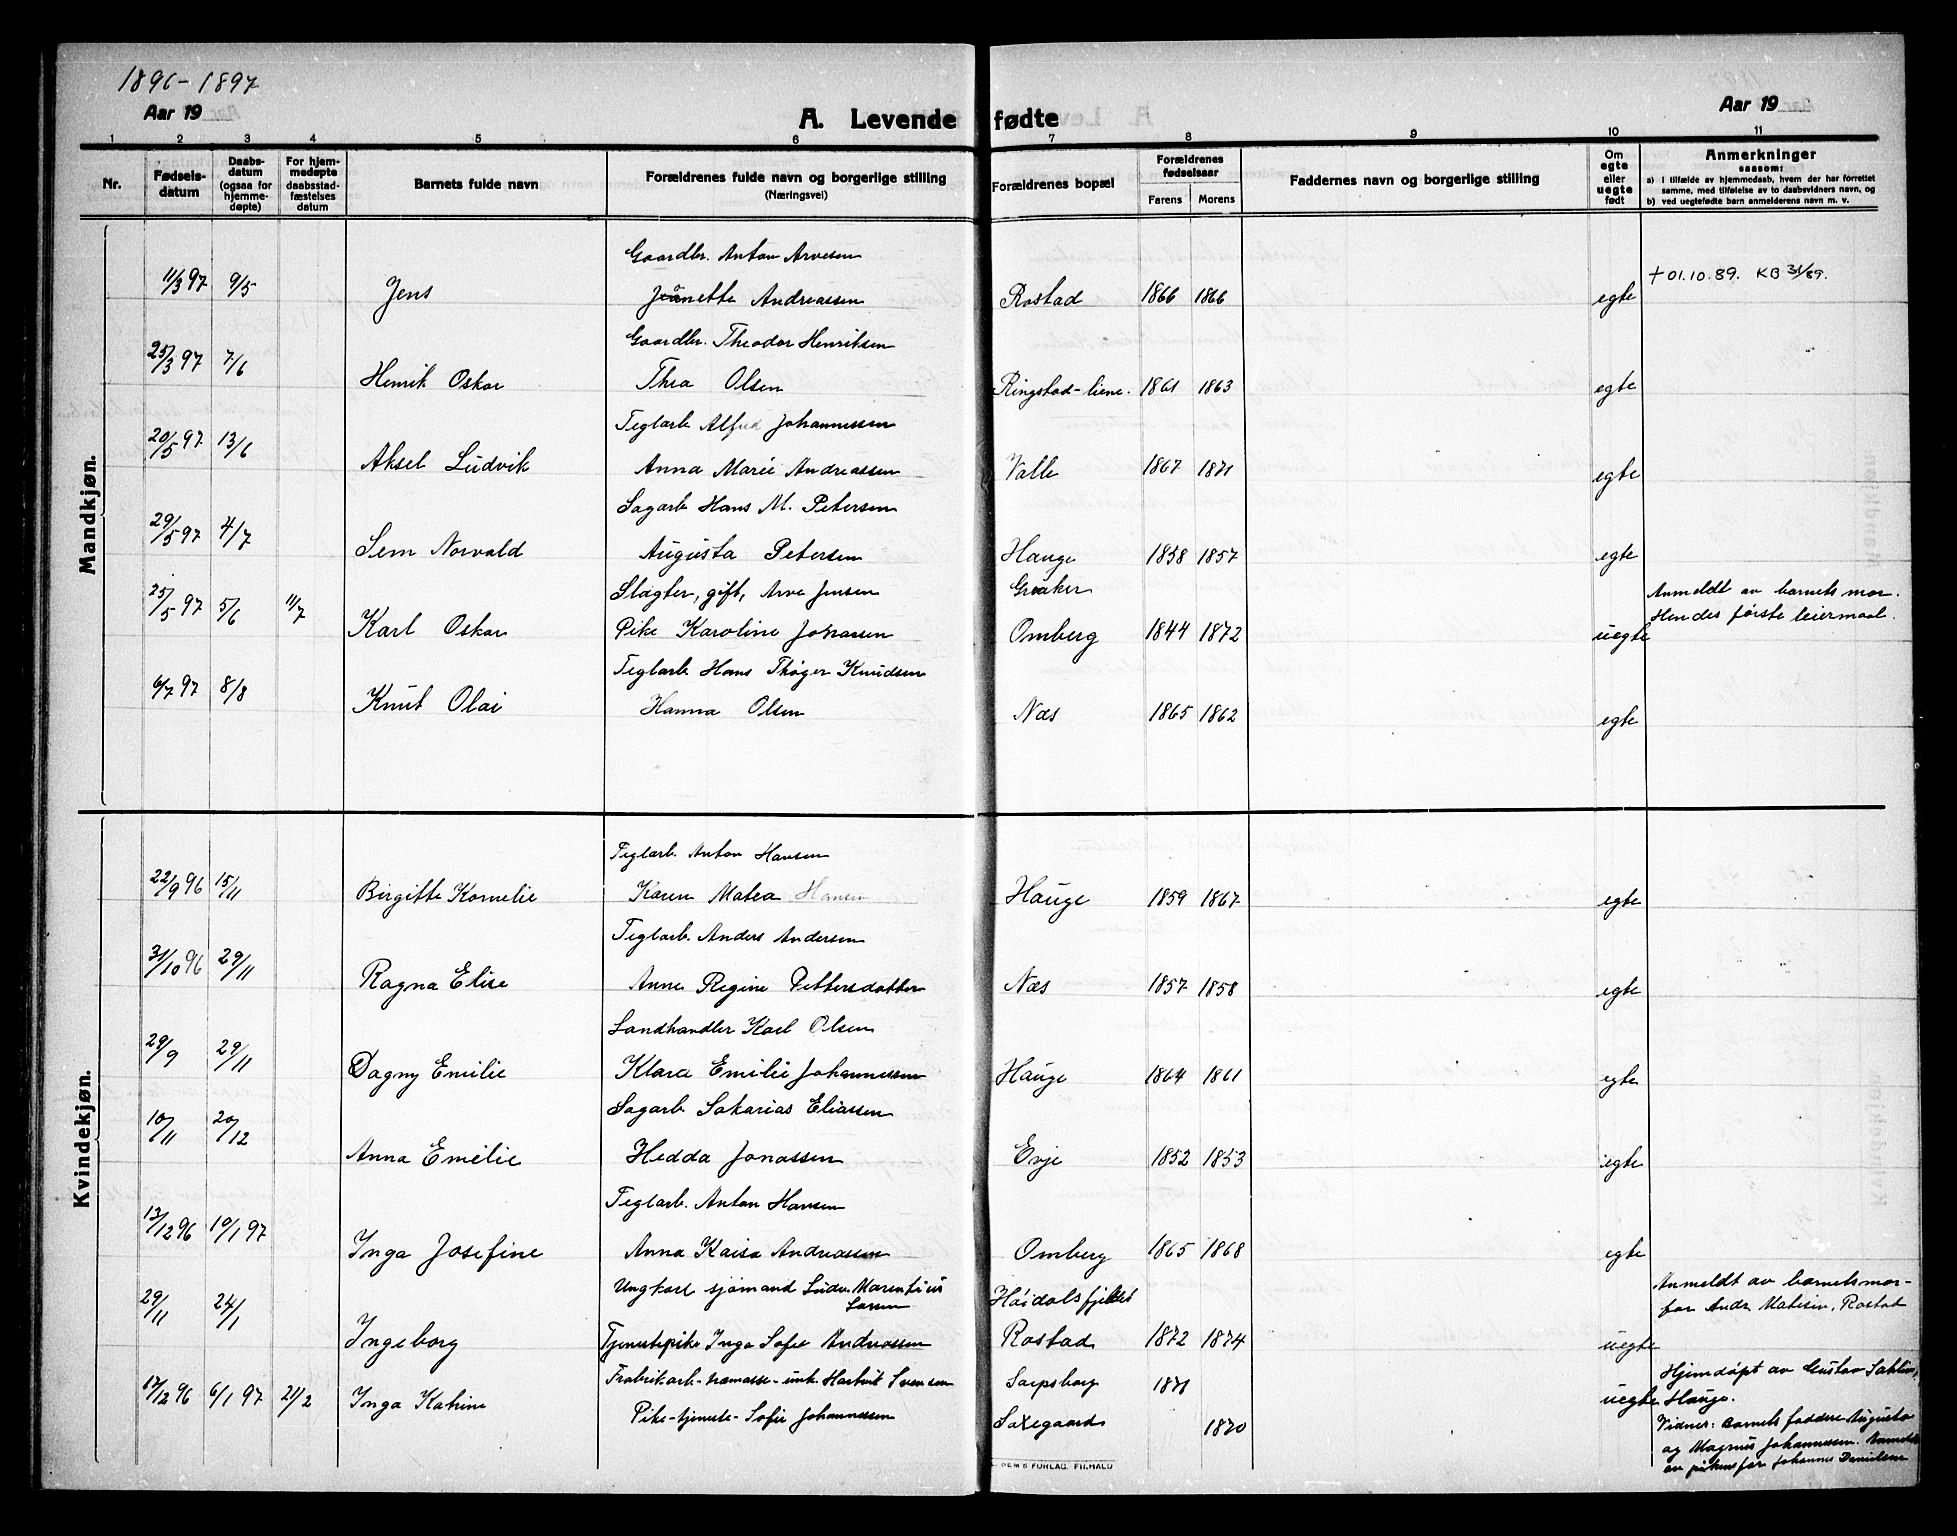 1896-1897
Aar 19
A. Levende fødte
Aar 19
1 2 3 4 5 6 7 8 9 10 11
Nr.
Fødsels-
datum
Daabs-
datum
(ogsaa for
hjemme-
døpte)
For hjem-
medøpte
daabsstad-
fæstelses
datum
Barnets fulde navn
Forældrenes fulde navn og borgerlige stilling
(Næringsvei)
Forældrenes bopæl
Forældrenes
fødselsaar
Farens Morens
Faddernes navn og borgerlige stilling
Om
egte
eller
uegte
født
Anmerkninger
saasom:
a) i tilfælde av hjemmedaab, hvem der har forrettet
samme, med tilføielse av to daabsvidners navn, og
b) ved uegtefødte barn anmelderens navn m. v.
Mandkjøn.
Gaardbr. Anton Arvesen
11/3 97 9/5 Jens Jeanette Andreassen Rostad 1866 1866 egte † 01.10.89. KB 31/89.
Gaardbr. Theodor Henriksen
25/3 97 7/6 Henrik Oskar Thea Olsen Ringstad-liene. 1861 1863 egte
Teglarb Alfred Johannessen
20/5 97 13/6 Aksel Ludvik Anna Marie Andreassen Valle 1867 1871 egte
Sagarb Hans M. Petersen
29/5 97 4/7 Sem Norvald Augusta Petersen Hauge 1858 1857 egte
Slagter, gift, Arve Jensen Greaker Anmeldt av barnets mor.
25/5 97 5/6 11/7 Karl Oskar Pike Karoline Johnassen Omberg 1844 1872 uegte Hendes første leiermaal.
Teglarb Hans Thøger Knudsen
6/7 97 8/8 Knut Olai Hanna Olsen Næs 1865 1862 egte
Kvindekjøn.
Teglarb. Anton Hansen
22/9 96 15/11 Birgitte Kornelie Karen Matea Hansen Hauge 1859 1867 egte
Teglarb. Anders Andersen
31/10 96 29/11 Ragna Elise Anne Regine Pettersdatter Næs 1857 1858 egte
Landhandler Karl Olsen
29/9 29/11 Dagny Emilie Klara Emilie Johannessen Hauge 1864 1861 egte
Sagarb Sakarias Eliassen
10/11 20/12 Anna Emelie Hedda Jonassen Evje 1852 1853 egte
Teglarb. Anton Hansen
13/12 96 10/1 97 Inga Josefine Anna Kaisa Andreassen Omberg 1865 1868 egte
Ungkarl sjømand Ludv. Marentius Høidalsfjeldet Anmeldt av barnets mor-
Larsen far Andr. Matisen, Rostad
29/11 24/1 Ingeborg Tjenestepike Inga Sofie Andreassen Rostad 1872 1874 uegte
Fabrikarb. Svensen Sarpsborg 1871 Hjemdøpt av Gustav
17/12 96 6/1 97 21/2 Inga Katrine uegte Hauge.
Pike-tjeneste- Sofie Johannessen Saxegaard 1870 Vidner: Barnets faddere Augusta
og Magnus Johannessen. Anmeldt
av pikens far Johannes Danielsen
FORLAG. FR.HALD